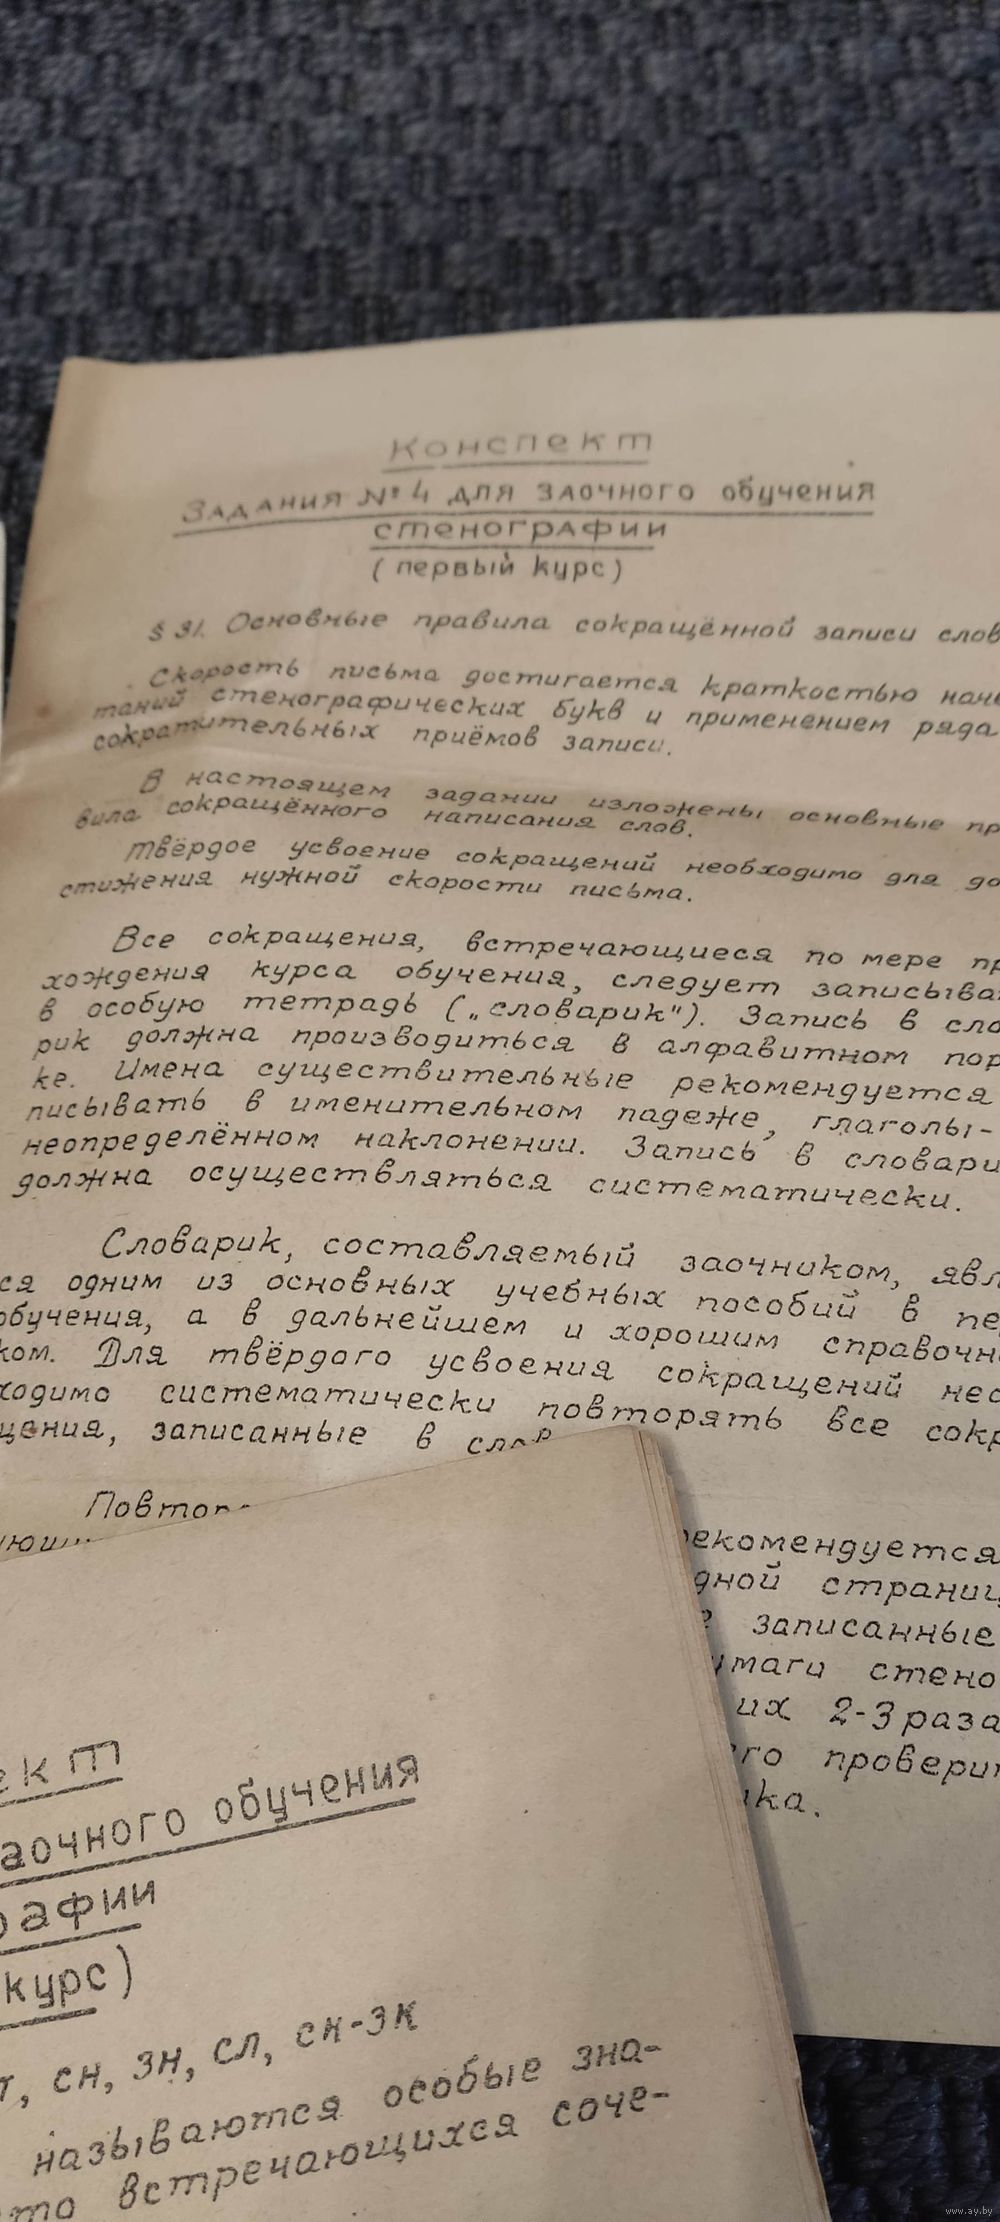 Конспект
Задания № 4 для заочного обучения
стенографии
(первый курс)
§ 31. Основные правила сокращённой записи слов
Скорость письма достигается краткостью наче
таний стенографических букв и применением ряда
сократительных приёмов записи.
В настоящем задании изложены основные пр
вила сокращённого написания слов.
Твёрдое усвоение сокращений необходимо для до
стижения нужной скорости письма.
Все сокращения, встречающиеся по мере пр
хождения курса обучения, следует записыва
в особую тетрадь („словарик"). Запись в сло
рик должна производиться в алфавитном пор
ке. Имена существительные рекомендуется
писывать в именительном падеже, глаголы-
неопределённом наклонении. Запись в словари
должна осуществляться систематически.
Словарик, составляемый заочником, явл
ся одним из основных учебных пособий в пе
обучения, а в дальнейшем и хорошим справочн
ком. Для твёрдого усвоения сокращений нео
ходимо систематически повторять все сокр
щения, записанные в слов
Повтор
ующи
рекомендуется
дной страниц
записанные
умаги стено
их 2-3 раза
его провери
ика.
ект
аочного обучения
рафии
курс)
т, сн, зн, сл, ск-зк
называются особые зна-
то встречающихся соче-
www.ay.by